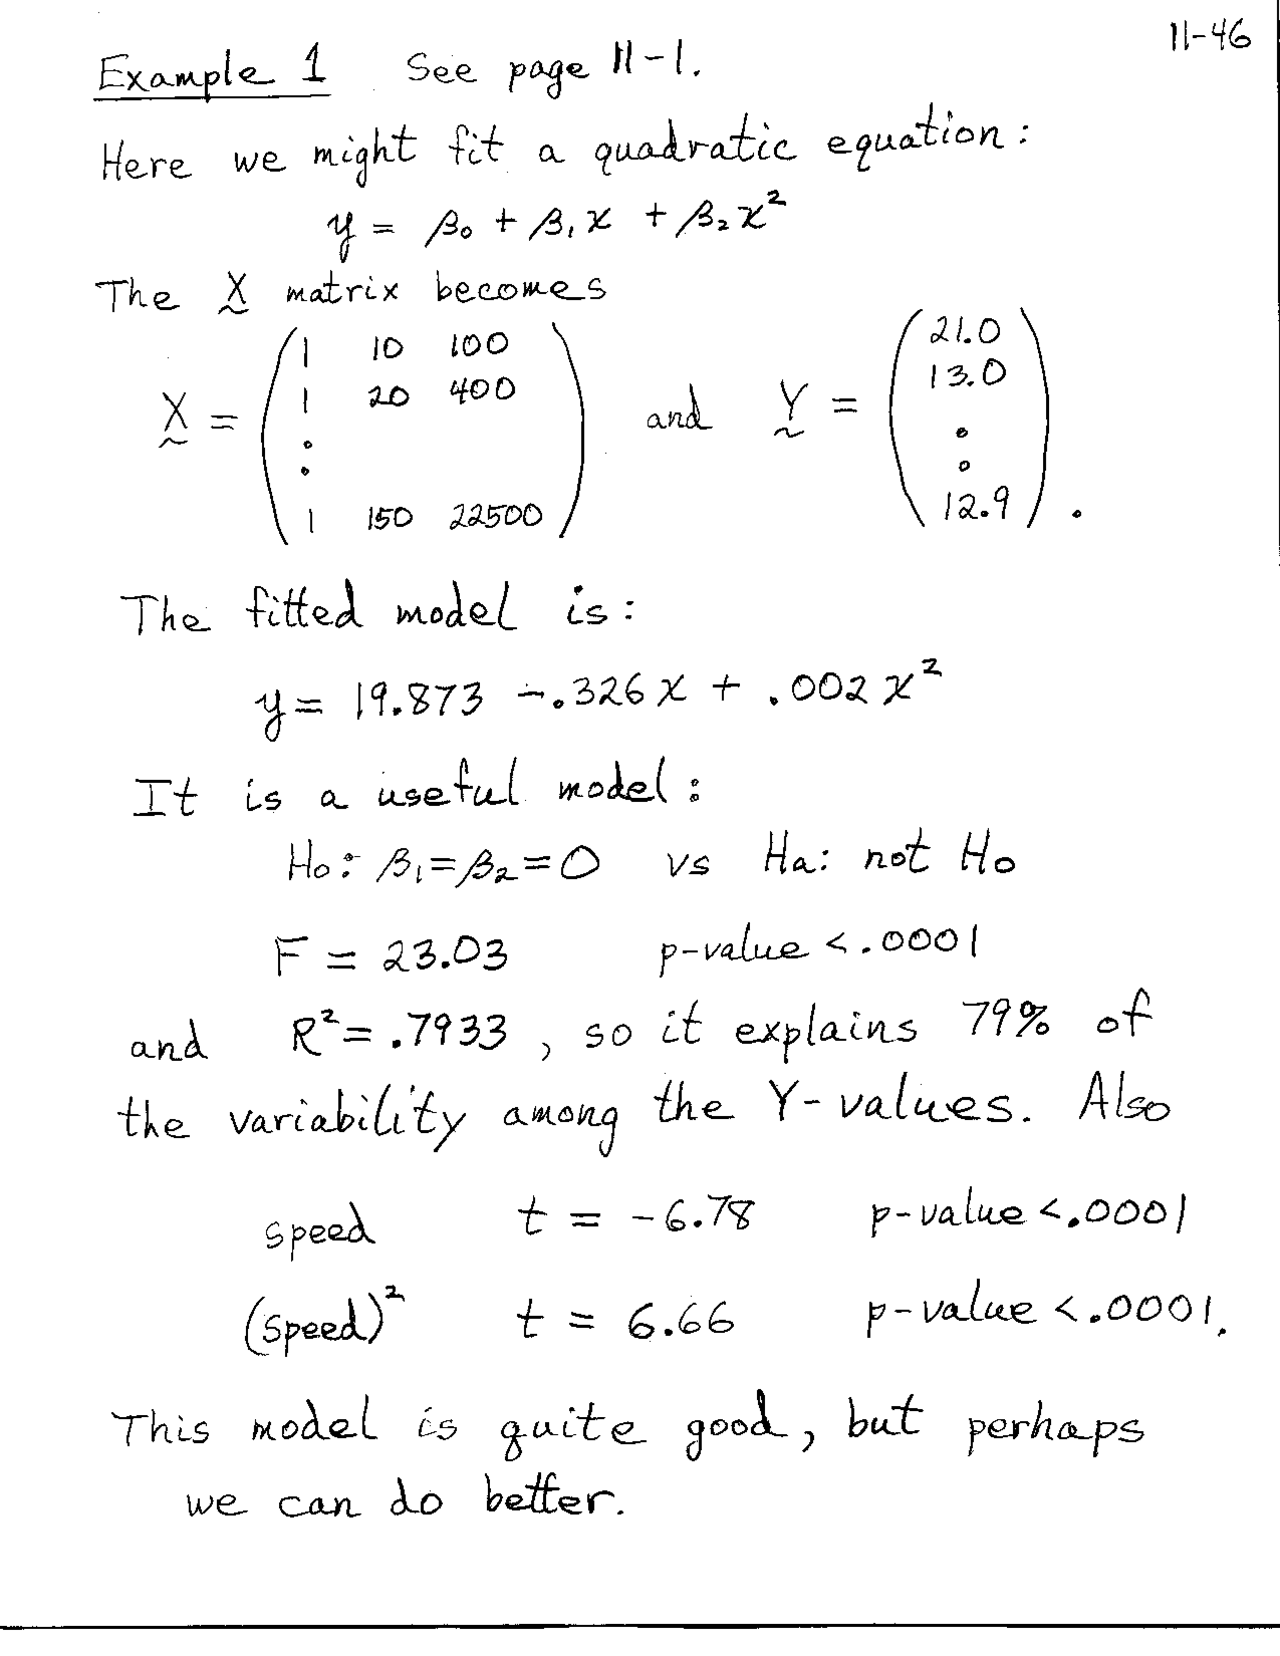 11-46
Example 1 See page 11-1.
Here we might fit a quadratic equation:
y = β₀ + β₁x + β₂x²
The X matrix becomes
X = ( 1 10 100
1 20 400
:
1 150 22500 ) and Y = ( 21.0
13.0
:
12.9 ) .
The fitted model is:
y = 19.873 -.326x + .002x²
It is a useful model:
H₀: β₁=β₂=0 vs Ha: not H₀
F = 23.03 p-value <.0001
and R²=.7933, so it explains 79% of
the variability among the Y-values. Also
speed t = -6.78 p-value <.0001
(speed)² t = 6.66 p-value <.0001.
This model is quite good, but perhaps
we can do better.